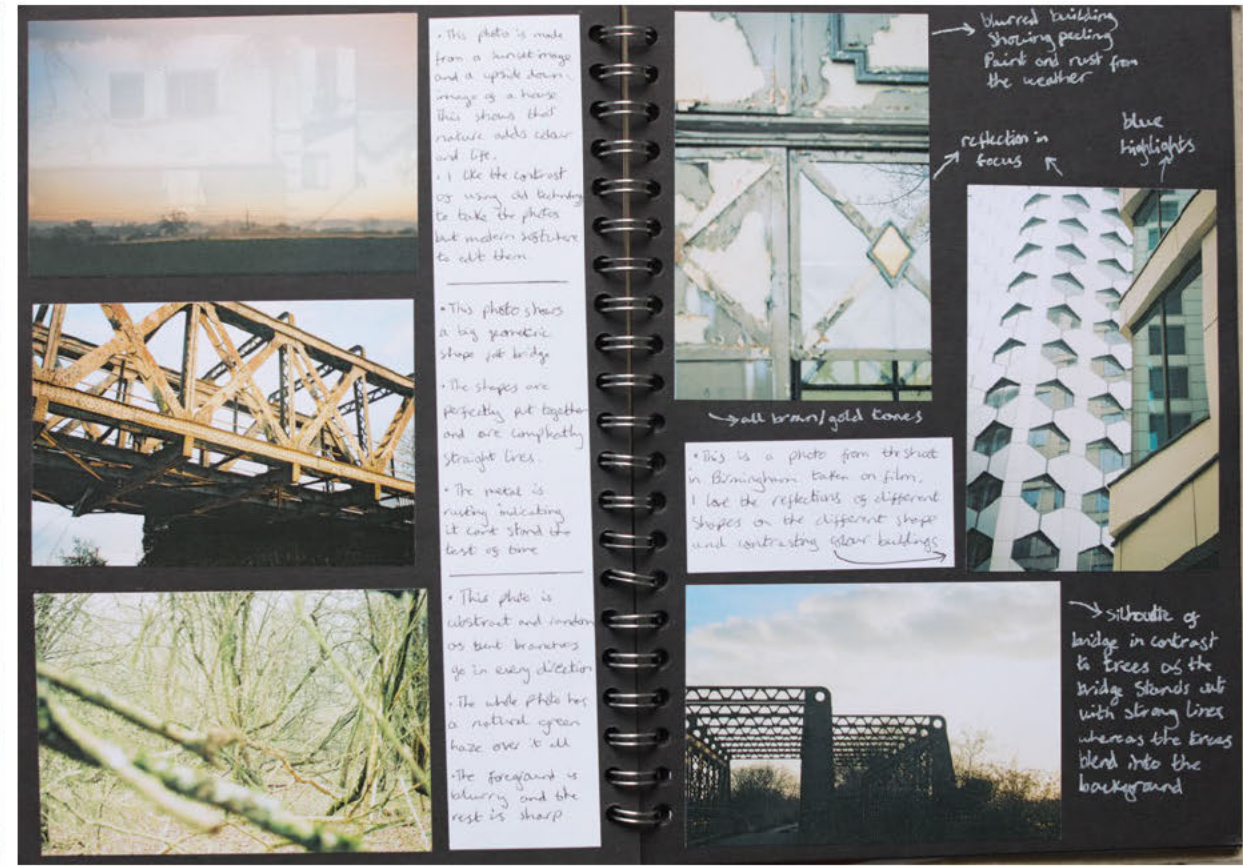 • This photo is made
from a sunset image
and a upside down
image of a house
This shows that
nature adds colour
and life.
• I like the contrast
of using old technology
to take the photos
but modern software
to edit them.
• This photo shows
a big geometric
shape bridge
• The shapes are
perfectly put together
and are compleatly
straight lines.
• The metal is
rusting indicating
it cant stand the
test of time
• This photo is
abstract and random
as bent branches
go in every direction
• The whole photo has
a natural green
haze over it all
• The foreground is
blurry and the
rest is sharp
→ blurred building
showing peeling
Paint and rust from
the weather
reflection in
focus
blue
highlights
→ all brown/gold tones
• This is a photo from
in Birmingham taken on film.
I love the reflections of different
shapes on the different shape
and contrasting colour buildings
→ silhoutte of
bridge in contrast
to trees as the
bridge stands out
with strong lines
whereas the trees
blend into the
background